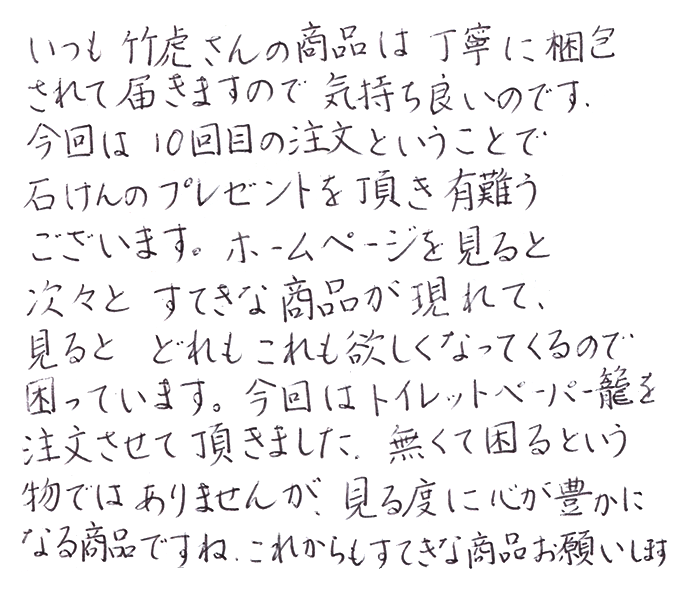 いつも竹虎さんの商品は丁寧に梱包
されて届きますので気持ち良いのです.
今回は10回目の注文ということで
石けんのプレゼントを頂き有難う
ございます。ホームページを見ると
次々とすてきな商品が現れて、
見るとどれもこれも欲しくなってくるので
困っています。今回はトイレットペーパー籠を
注文させて頂きました. 無くて困るという
物ではありませんが、見る度に心が豊かに
なる商品ですね.これからもすてきな商品お願いします